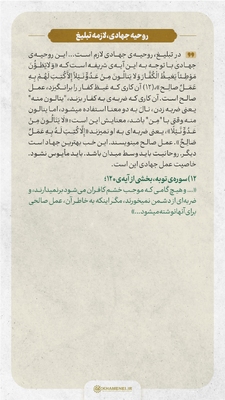 روحیه جهادی، لازمه تبلیغ
در تبلیغ، روحیه‌ی جهادی لازم است... این روحیه‌ی
جهادی با توجه به این آیه‌ی شریفه است که «وَ لا یَطَئونَ
مَوطِئًا یَغیظُ الکُفّارَ وَلا یَنالونَ مِن عَدُوٍّ نَیلًا اِلّا کُتِبَ لَهُم بِهِ
عَمَلٌ صالِح»؛(۱۲) آن کاری که غیظ کفار را برانگیزد، عمل
صالح است. آن کاری که ضربه‌ی به کفار بزند، «ینالون منه»
یعنی ضربه زدن، نال به دو معنا استفاده میشود، اما ینالون
منه وقتی با «مِن» باشد، معنایش این است؛ «لا یَنالونَ مِن
عَدُوٍّ نَیلًا»، یعنی ضربه‌ای به او نمیزند «اِلّا کُتِبَ لَهُ بِهِ عَمَلٌ
صالِحٌ». عمل صالح مینویسند. این خب بهترین جهاد است
دیگر. روحانیت باید وسط میدان باشد. باید مأیوس نشود.
خاصیت عمل جهادی این است.
۱۲) سوره‌ی توبه، بخشی از آیه‌ی ۱۲۰؛
«... و هیچ گامی که موجب خشم کافران می‌شود برنمیدارند، و
ضربه‌ای از دشمن نمیخورند، مگر اینکه به خاطر آن، عمل صالحی
برای آنها نوشته میشود...»
KHAMENEI.IR